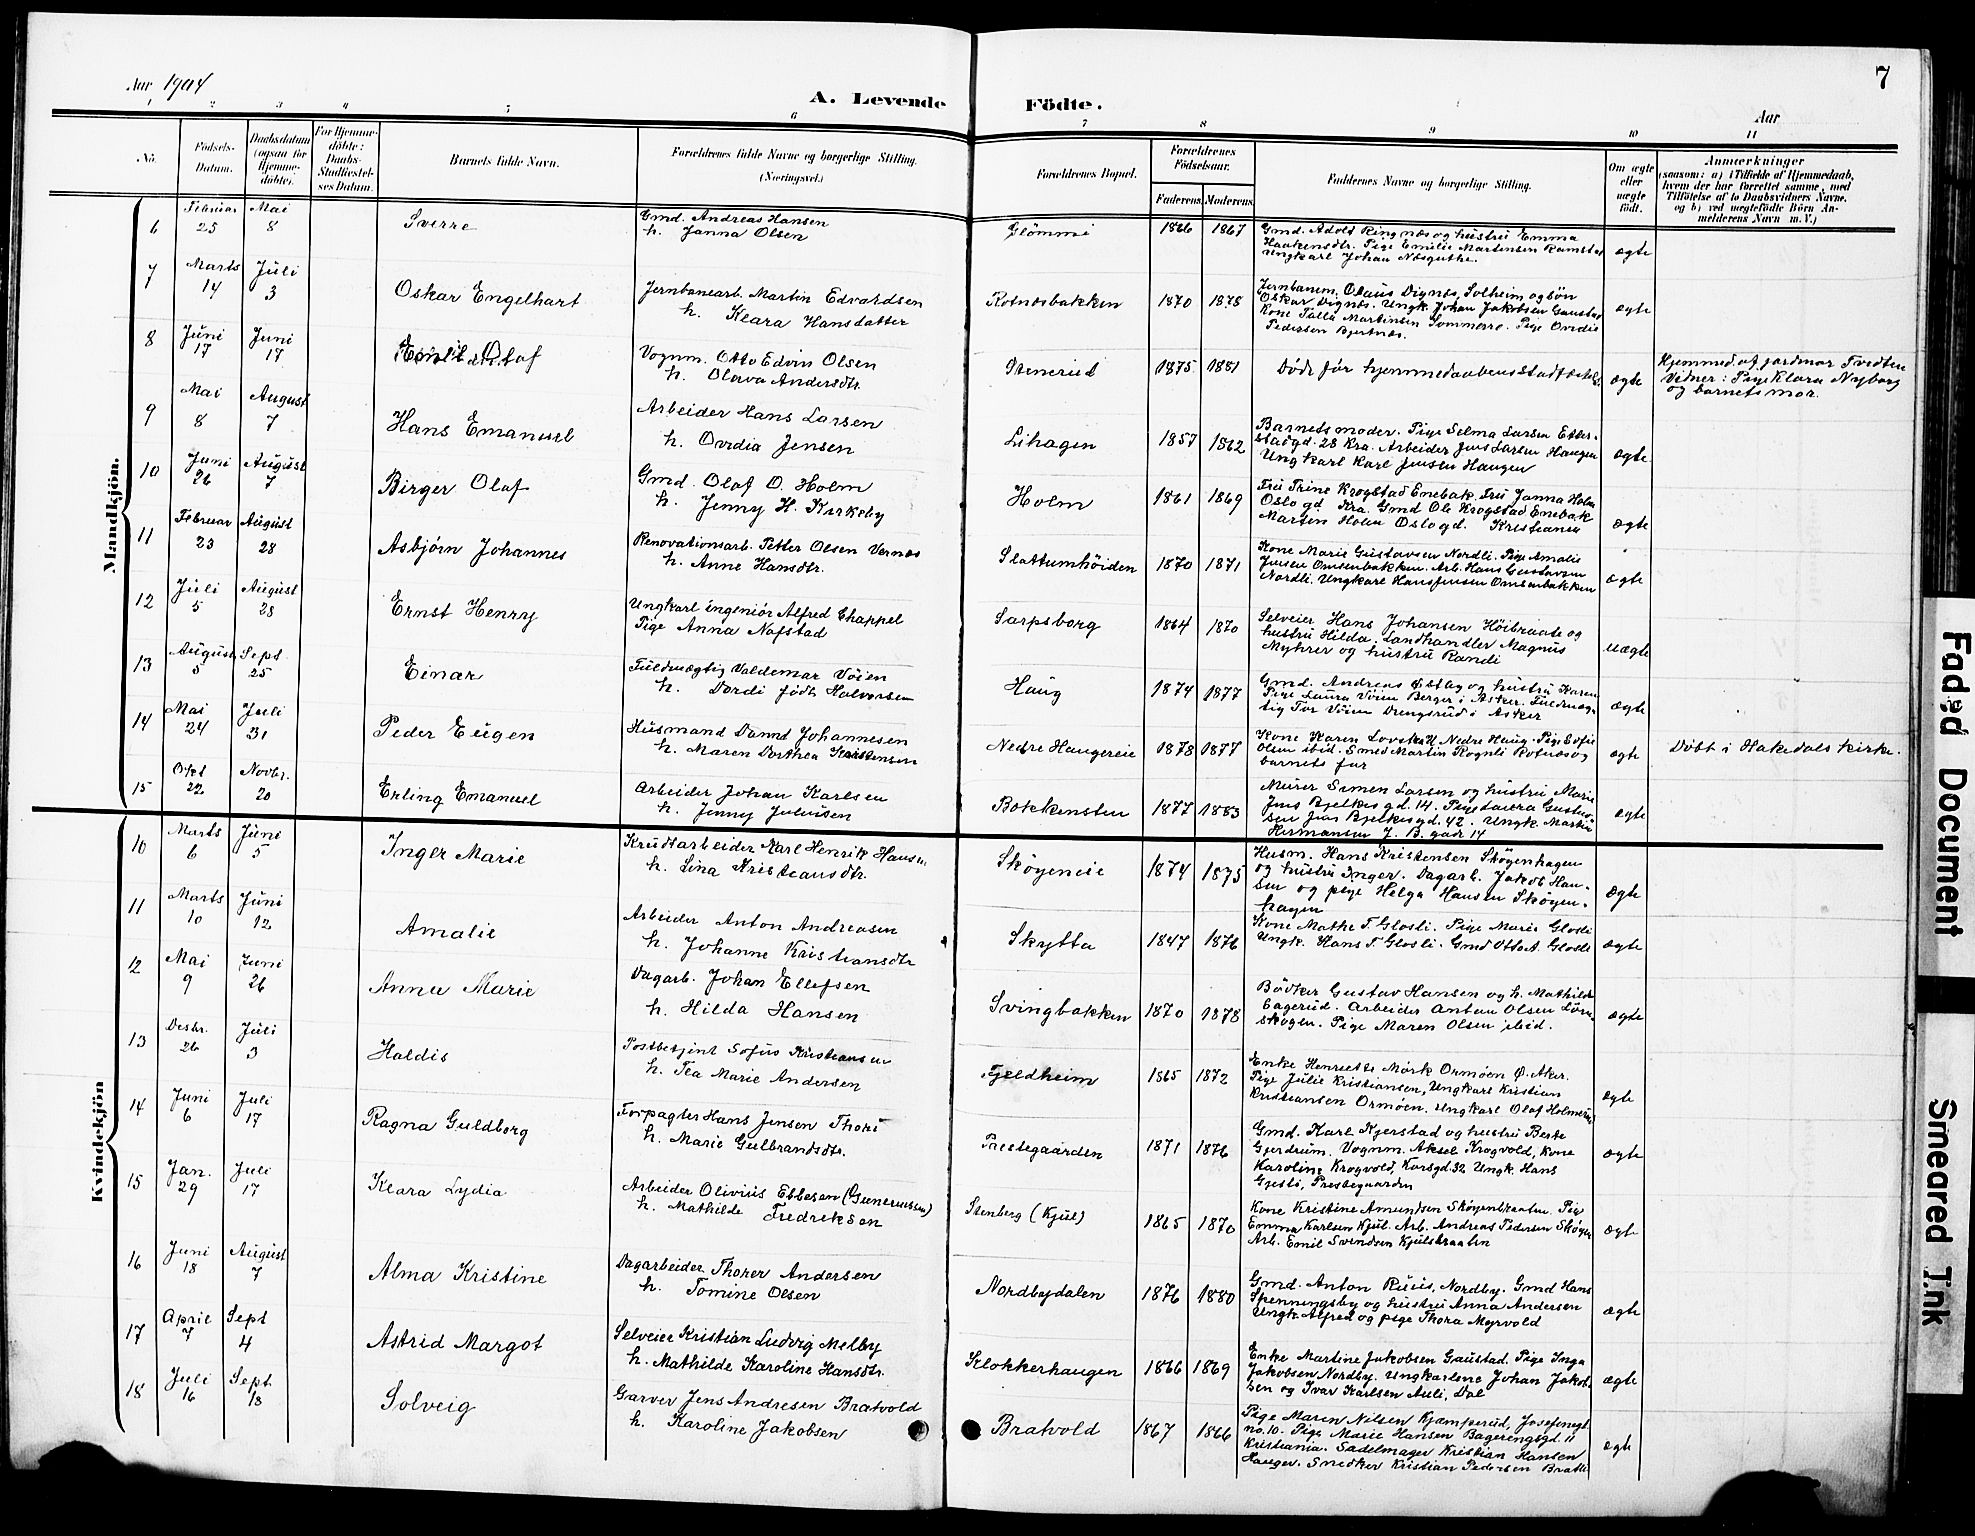 Aar 1904
A. Levende Födte.
7
Aar
1 2 3 4 5 6 7 8 9 10 11
No.
Födsels-
Datum.
Daabsdatum
(ogsaa for
Hjemme-
döbte).
For Hjemme-
döbte:
Daabs-
Stadfæstel-
ses Datum.
Barnets fulde Navn.
Forældrenes fulde Navne og borgerlige Stilling.
(Næringsvei.)
Forældrenes Bopæl.
Forældrenes
Födselsaar.
Faderens. Moderens.
Faddernes Navne og borgerlige Stilling.
Om ægte
eller
uægte
födt.
Anmærkninger
(saasom: a) i Tilfælde af Hjemmedaab,
hvem der har forrettet samme, med
Tilföielse af to Daabsvidners Navne,
og b) ved uægtefödte Börn An-
melderens Navn m. V.)
Mandkjön.
6
Februar
25
Mai
8
Sverre
Gmd. Andreas Hansen
h. Janna Olsen
Glømmi
1866 1867
Gmd. Adolf Ringnæs og hustru Emma
Haakensdtr. Pige Emilie Martinsen Ramstad
Ungkarl Johan Næsguthe.
ægte
7
Marts
14
Juli
3
Oskar Engelhart
Jernbanearb. Martin Edvardsen
h. Klara Hansdatter
Rotnæsbakken
1870 1878
Jernbanem. Olaus Dignæs, Solheim og søn
Oskar Dignæs. Ungk. Johan Jakobsen Gaustad
Kone Talla Martinsen Sommerro. Pige Ovidia
Pedersen Bjertnæs.
ægte
8
Juni
17
Juni
17
Vognm. Otto Edvin Olsen
h. Olava Andersdtr.
Stenerud
1875 1881
Døde før hjemmedaabens stadfæstelse
ægte
Hjemmed. af jordmor Tvedten
Vidner: Pige Klara Nyborg
og barnets mor.
9
Mai
8
August
7
Hans Emanuel
Arbeider Hans Larsen
h. Ovidia Jensen
Lihagen
1857 1862
Barnets moder. Pige Selma Larsen Etter-
stadgd. 28 Kra. Arbeider Jens Larsen Haugen
Ungkarl Karl Jensen Haugen
ægte
10
Juni
26
August
7
Birger Olaf
Gmd. Olaf O. Holm
h. Jenny H. Kirkeby
Holm
1861 1869
Fru Trine Krogstad Enebak. Fru Janna Holm
Oslo gd. Kra. Gmd Ole Krogstad Enebak
Marten Holm Oslo gd. Kristiania
ægte
11
Februar
23
August
28
Asbjørn Johannes
Renovationsarb. Petter Olsen Vernæs
h. Anne Hansdtr.
Slattumhøiden
1870 1871
Kone Marie Gustavsen Nordli. Pige Amalie
Jensen Omsenbakken. Arb. Hans Gustavsen
Nordli. Ungkarl Hans Jensen Omsenbakken
ægte
12
Juli
5
August
28
Ernst Henry
Ungkarl ingeniør Alfred Chappel
Pige Anna Nafstad
Sarpsborg
1864 1870
Selveier Hans Johansen Høibraate og
hustru Hilda. Landhandler Magnus
Myhrer og hustru Randi
uægte
13
August
5
Sept.
25
Einar
Fuldmægtig Valdemar Vøien
h. Dordi født Halvorsen
Haug
1874 1877
Gmd. Andreas Østby og hustru Karen
Pige Laura Vøien Berger i Asker. Fuldmæg-
tig Tor Vøien Drengsrud i Asker
ægte
14
Mai
24
Juli
31
Peder Eugen
Husmand Dannd Johannesen
h. Maren Dorthea Karstensen
Nedre Haugereie
1878 1877
Kone Karen Nedre Haug. Pige Sofie
Olsen ibid. Smed Martin Rognli Rotnæs og
barnets far
ægte
Døbt i Hakedals kirke.
15
Okt
22
Novbr.
20
Erling Emanuel
Arbeider Johan Karlsen
h. Jenny Juliusen
Bakkensten
1877 1883
Murer Simen Larsen og hustru Marie
Jens Bjelkes gd. 14. Pige Laura Gustav-
sen Jens Bjelkesgd. 42. Ungk. Martin
Hermansen J. B. gade 14
ægte
Kvindekjön
10
Marts
6
Juni
5
Inger Marie
Krudtarbeider Karl Henrik Hansen
h. Lina Kristiansdtr.
Skøyeneie
1874 1875
Husm. Hans Kristensen Skøyenhagen
og hustru Inger. Dagarb. Jakob Han-
sen og pige Helga Hansen Skøyen-
hagen
ægte
11
Marts
10
Juni
12
Amalie
Arbeider Anton Andreasen
h. Johanne Kristiansdtr
Skytta
1847 1876
Kone Mathe T. Glosli. Pige Marie Glosli
Ungk. Hans T. Glosli. Gmd Otto A. Glosli
ægte
12
Mai
9
Juni
26
Anna Marie
Dagarb. Johan Ellefsen
h. Hilda Hansen
Svingbakken
1870 1878
Bødker Gustav Hansen og h. Mathilde
Bagerud. Arbeider Anton Olsen Løren-
skogen. Pige Maren Olsen ibid.
ægte
13
Desbr.
26
Juli
3
Haldis
Postbetjent Sofus Kristiansen
h. Tea Marie Andersen
Fjeldheim
1865 1872
Enke Henriette Mørk Ormøen Ø. Aker.
Pige Julie Kristiansen, Ungkarl Kristian
Kristiansen Ormøen. Ungkarl Olaf Holmerud
ægte
14
Juni
6
Juli
17
Ragna Guldborg
Forpagter Hans Jensen Thori
h. Marie Gulbrandsdtr.
Prestegaarden
1871 1876
Gmd. Karl Kjerstad og hustru Berte
Gjerdrum. Vognm. Aksel Krogvold, Kone
Karoline Krogvold, Korsgd. 32 Ungk. Hans
Gjesti, Prestegaarden
ægte
15
Jan.
29
Juli
17
Klara Lydia
Arbeider Olivius Ebbesen (Gunerussen)
h. Mathilde Fredriksen
Stenberg (Kjul)
1865 1870
Kone Kristine Amundsen Skøyenbraaten. Pige
Emma Karlsen Kjul. Arb. Andreas Pedersen Skøyen
Arb. Emil Svendsen Kjulsbraaten
ægte
16
Juni
18
August
7
Alma Kristine
Dagarbeider Thorer Andersen
h. Tomine Olsen
Nordbydalen
1876 1880
Gmd. Anton Ruus, Nordby. Gmd Hans
Spenningsby og hustru Anna Andersen
Ungk. Alfred og pige Thora Myrvold
ægte
17
April
7
Sept
4
Astrid Margot
Selveier Kristian Ludvig Melby
h. Mathilde Karoline Hansdtr.
Klokkerhaugen
1866 1869
Enke Martine Jakobsen Gaustad. Pige Inga
Jakobsen Nordby. Ungkarlene Johan Jakob-
sen og Ivar Karlsen Auli, Dal
ægte
18
Juli
16
Sept.
18
Solveig
Garver Jens Andresen Bratvold
h. Karoline Jakobsen
Bratvold
1867 1866
Pige Maren Nilsen Kjæmperud, Josefinegt
no. 10. Pige Marie Hansen Bagerengsgd. 11
Kristiania. Sadelmager Kristian Hansen
Hauger. Snedker Kristian Pedersen Bratli
ægt
Faded Document
Smeared Ink